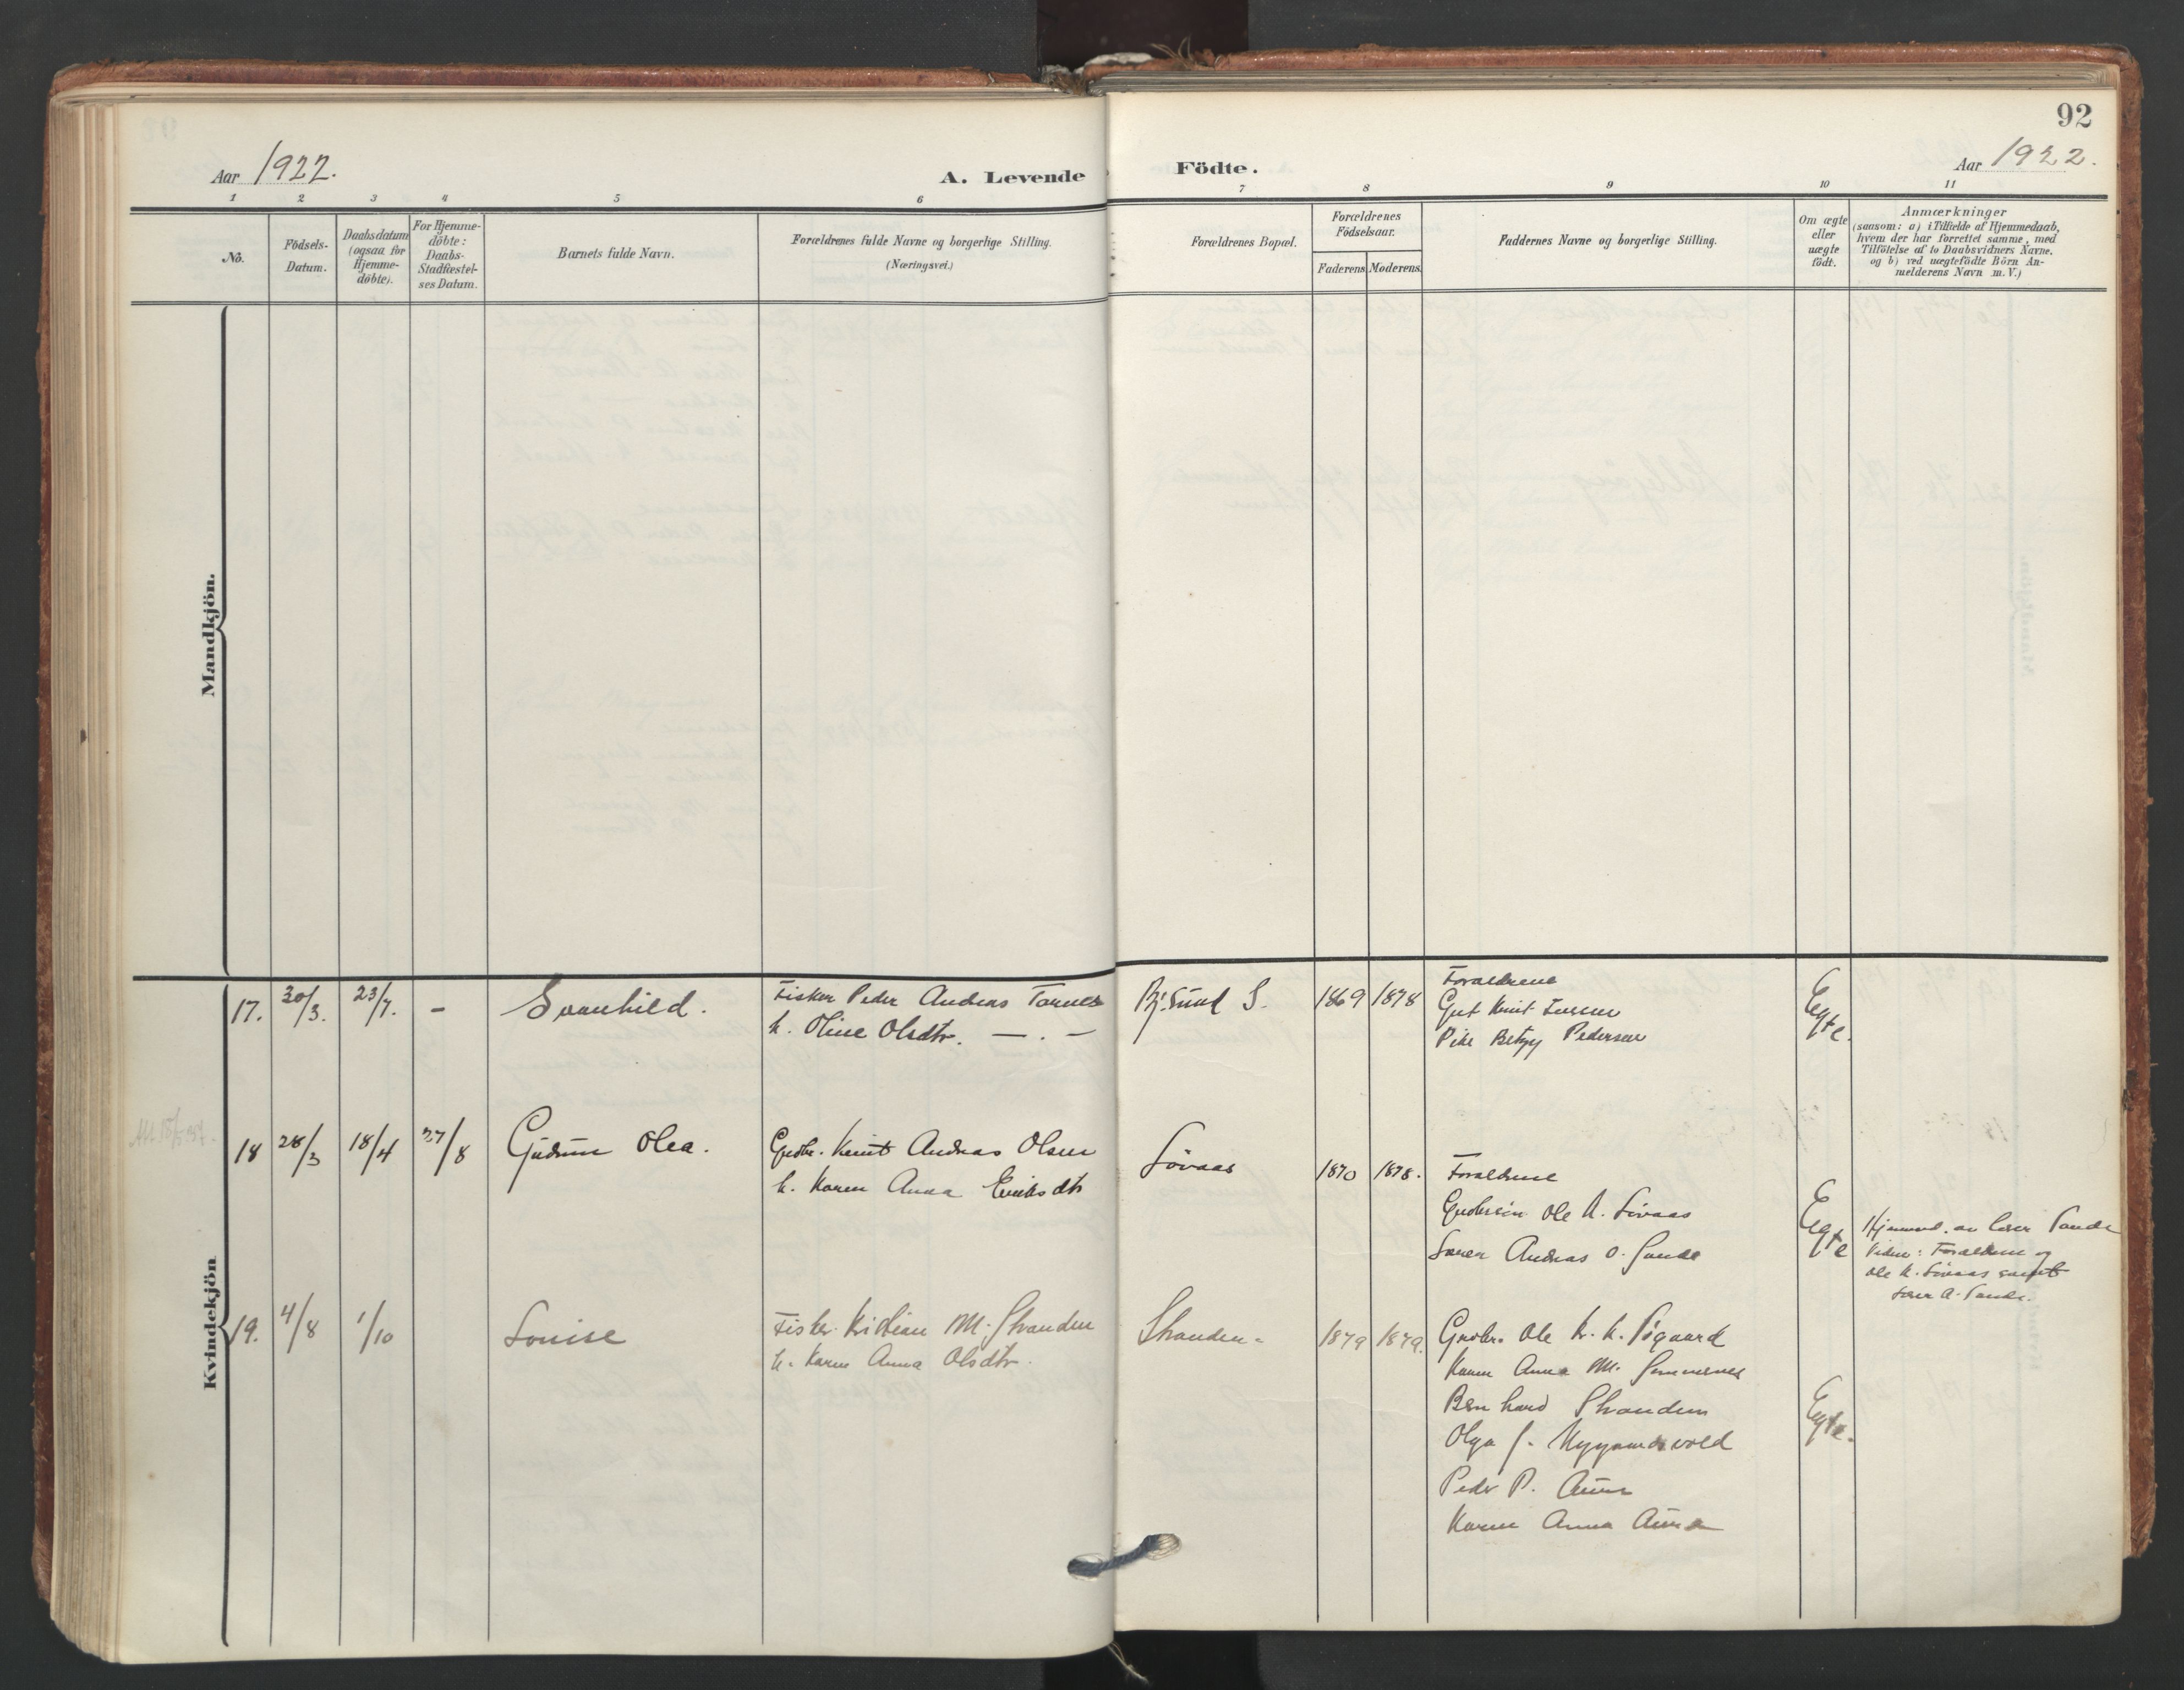 92
Aar 1922.
A. Levende Födte.
Aar 1922.
1 2 3 4 5 6 7 8 9 10 11
No.
Födsels-
Datum.
Daabsdatum
(ogsaa for
Hjemme-
döbte).
For Hjemme-
döbte:
Daabs-
Stadfæstel-
ses Datum.
Barnets fulde Navn.
Forældrenes fulde Navne og borgerlige Stilling.
(Næringsvei.)
Forældrenes Bopæl.
Forældrenes
Födselsaar.
Faderens. Moderens.
Faddernes Navne og borgerlige Stilling.
Om ægte
eller
uægte
födt.
Anmærkninger
(saasom: a) i Tilfælde af Hjemmedaab,
hvem der har forrettet samme, med
Tilföielse af to Daabsvidners Navne,
og b) ved uægtefödte Börn An-
melderens Navn m. V.)
Mandkjön.
Kvindekjön
17. 30/3. 23/7. - Svanhild.
Fisker Peder Andreas Tarnes
h. Oline Olsdtr. — . —
Bj.sund S. 1869 1878
Forældrene
Gut Knut Iversen
Pike Betzy Pedersen
Egte.
18 28/3 18/4 27/8 Gudrun Olea.
Grdbr. Knut Andreas Olsen
h. Karen Anna Eriksdtr
Lövaas 1870 1878.
Forældrene
Grdbrsön Ole K. Lövaas
Lærer Andreas O. Sande
Egte
Hjemmed. av lærer Sande
Vidner: Forældrene og
Ole K. Lövaas samt
Lærer A. Sande.
19. 4/8 1/10 Louise
Fisker Kristian M. Stranden
h. Karen Anna Olsdtr.
Stranden 1879 1879.
Grdbr. Ole K. K.
Karen Anna M.
Bernhard Stranden
Olga J.
Peder P. Aune
Karen Anna Aune
Egte.